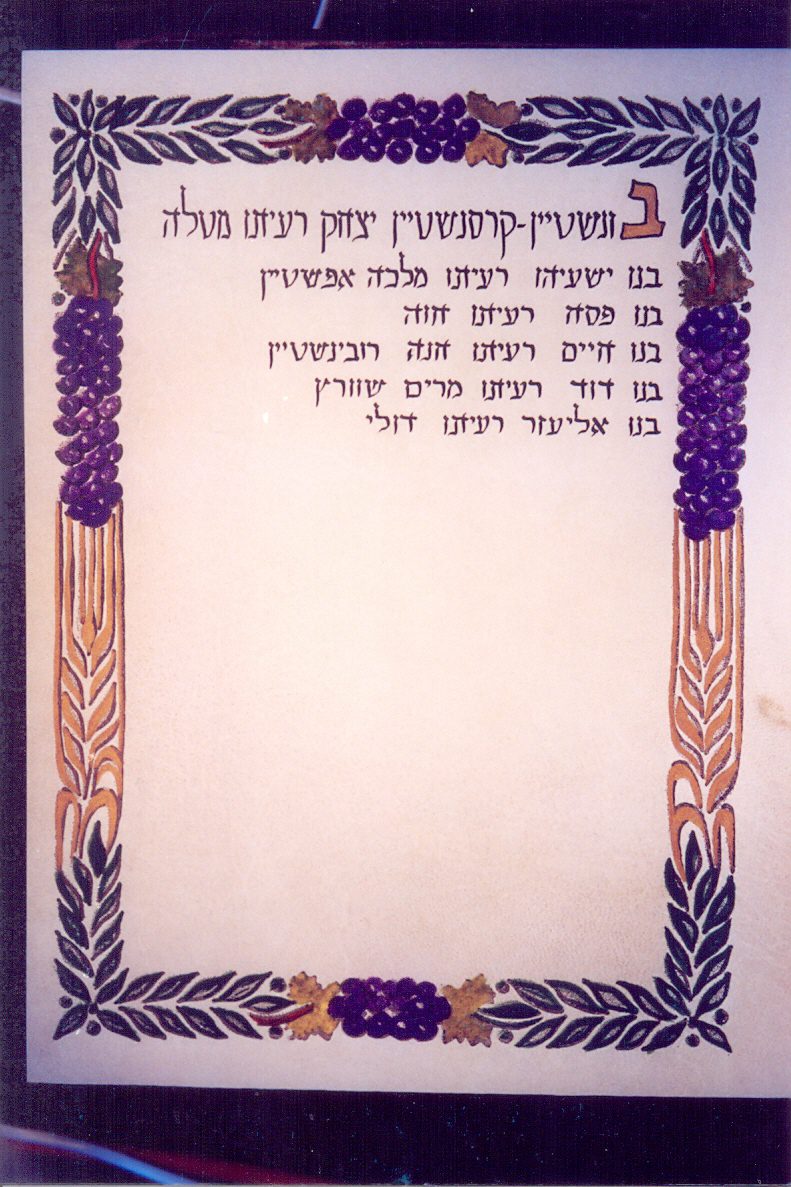 בונשטיין-קרסנשטיין יצחק רעיתו מטלה
בנו ישעיהו רעיתו מלכה אפשטיין
בנו פסח רעיתו חוה
בנו חיים רעיתו חנה רובינשטיין
בנו דוד רעיתו מרים שוורץ
בנו אליעזר רעיתו דולי